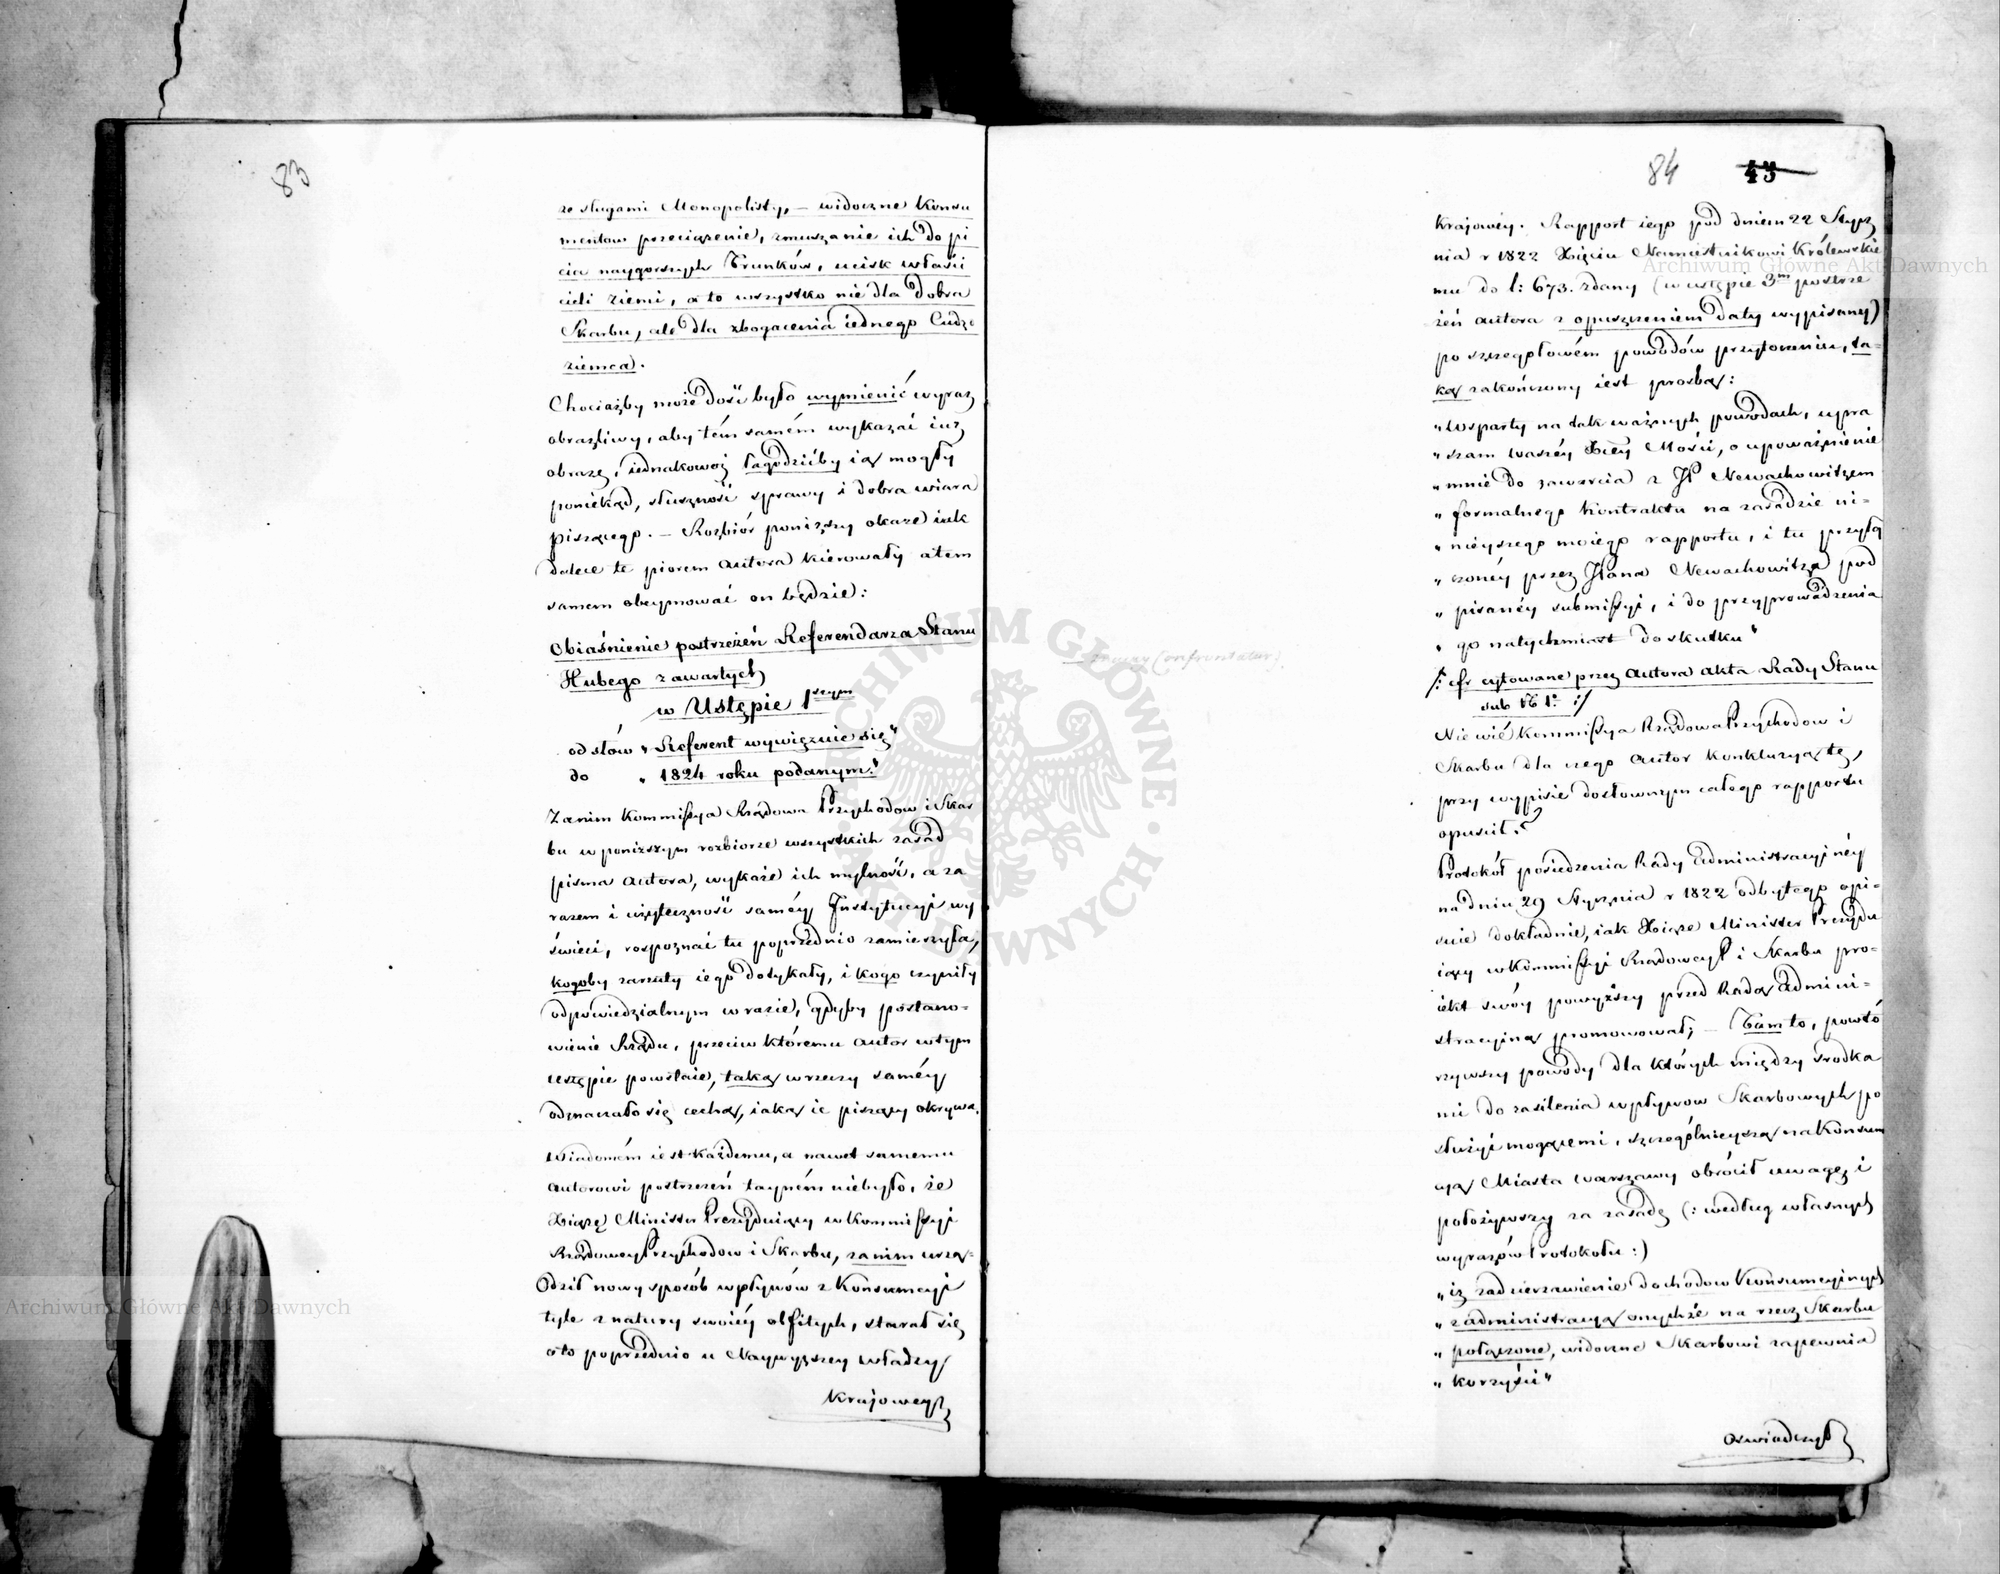 83
ze sługami Monopolisty, – widoczne konsu
mentow przeciążenie, zmuszanie ich do pi
cia naygorszych Trunków, ucisk właści
cieli ziemi, a to wszystko nie dla dobra
Skarbu, ale dla zbogacenia iednego Cudzo
ziemca.
Chociażby może dość było wymienić wyraz
obraźliwy, aby tém samém wykazać iuż
obrazę, iednakowoż łagodzićby ią mogły
poniekąd, słuszność sprawy i dobra wiara
piszącego. – Rozbiór poniższy okaże iak
dalece te piórem autora kierowały a tem
samem obeymować on będzie:
Obiaśnienie postrzeżeń Referendarza Stanu
Hubego zawartych
w Ustępie 1szym
od słów „Referent wywięzuie się"
do „1824 roku podanym."
Zanim Kommissya Rządowa Przychodow i Skar
bu w poniższym rozbiorze wszystkich zasad
pisma autora, wykaże ich mylność, a za
razem i użyteczność saméy Instytucyi wy
świeci, rospoznać tu poprzednio zamierzyła,
kogoby zarzuty iego dotykały, i kogo czyniły
odpowiedzialnym w razie, gdyby postano-
wienie Rządu, przeciw któremu autor w tym
ustępie powstaie, taką w rzeczy saméy
odznaczało się cechą, iaką ie piszący okrywa.
Wiadomém iest każdemu, a nawet samemu
autorowi postrzeżeń tayném niebyło, że
Xiążę Minister Prezyduiący w Kommissyi
Rządowey Przychodow i Skarbu, zanim urzą-
dził nowy sposób wpływów z Konsumcyi
tyle z natury swoiéy obfitych, starał się
o to poprzednio u Naywyższey władzy
Krajowey
84 43
Krajowéy. Rapport iego pod dniem 22 Stycz
nia r 1822 Xięciu Namiestnikowi Królewskie
mu do l: 673. zdany (w ustępie 3m postrze
żeń autora z opuszczeniem daty wypisany)
po szczegółowém powodów przytoczeniu, ta-
ką zakończony iest prosbą:
„Wsparty na tak ważnych powodach, upra
„szam Waszéy Xcéy Mości, o upoważnienie
„mnie do zawarcia z JP Newachowiczem
„formalnego Kontraktu na zasadzie ni-
„nieyszego moiego rapportu, i tu przyłą
„czonéy przez JPana Newachowicza pod
„pisanéy submissyi, i do przyprowadzenia
„go natychmiast do skutku"
/: cfr cytowane przez autora akta Rady Stanu
sub № 1: :/
Nie wié Kommissya Rządowa Przychodow i
Skarbu dla czego autor Konkluzyą tę,
przy wypisie dosłownym całego rapportu
opuścił?
Protokół posiedzenia Rady Administracyinéy
na dniu 29 Stycznia r 1822 odbytego opi-
suie dokładnie, iak Xiąże Minister Prezydu
iący w Kommissyi Rządowey P i Skarbu pro-
iekt swóy powyższy przed Radą Admini-
stracyiną promowował; – Tam to, powtó
rzywszy powody dla których między środka
mi do zasilenia wpływow Skarbowych po
służyć mogącemi, szczególnieyszą na Konsum
cyą Miasta Warszawy obrócił uwagę i
położywszy za zasadę (: według własnych
wyrazów Protokołu :)
„iż zadzierzawienie dochodow Konsumcyinych
„z administracyą onychże na rzecz Skarbu
„połączone, widoczne Skarbowi zapewnia
„korzyści"
Oswiadczył
Archiwum Główne Akt Dawnych
Archiwum Główne Akt Dawnych
ARCHIWUM GŁÓWNE AKT DAWNYCH